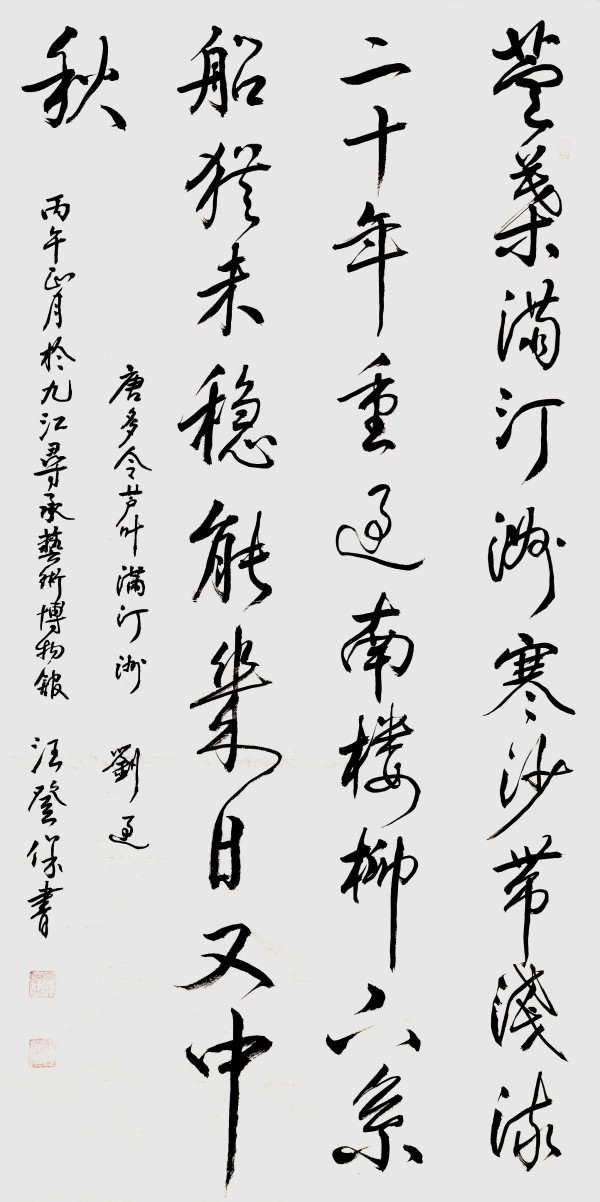 蘆葉滿汀洲寒沙帶淺流
二十年重過南楼柳下系
船猶未稳能幾日又中
秋
唐多令芦叶滿汀洲 劉過
丙午正月於九江尋承藝術博物館 汪登保書